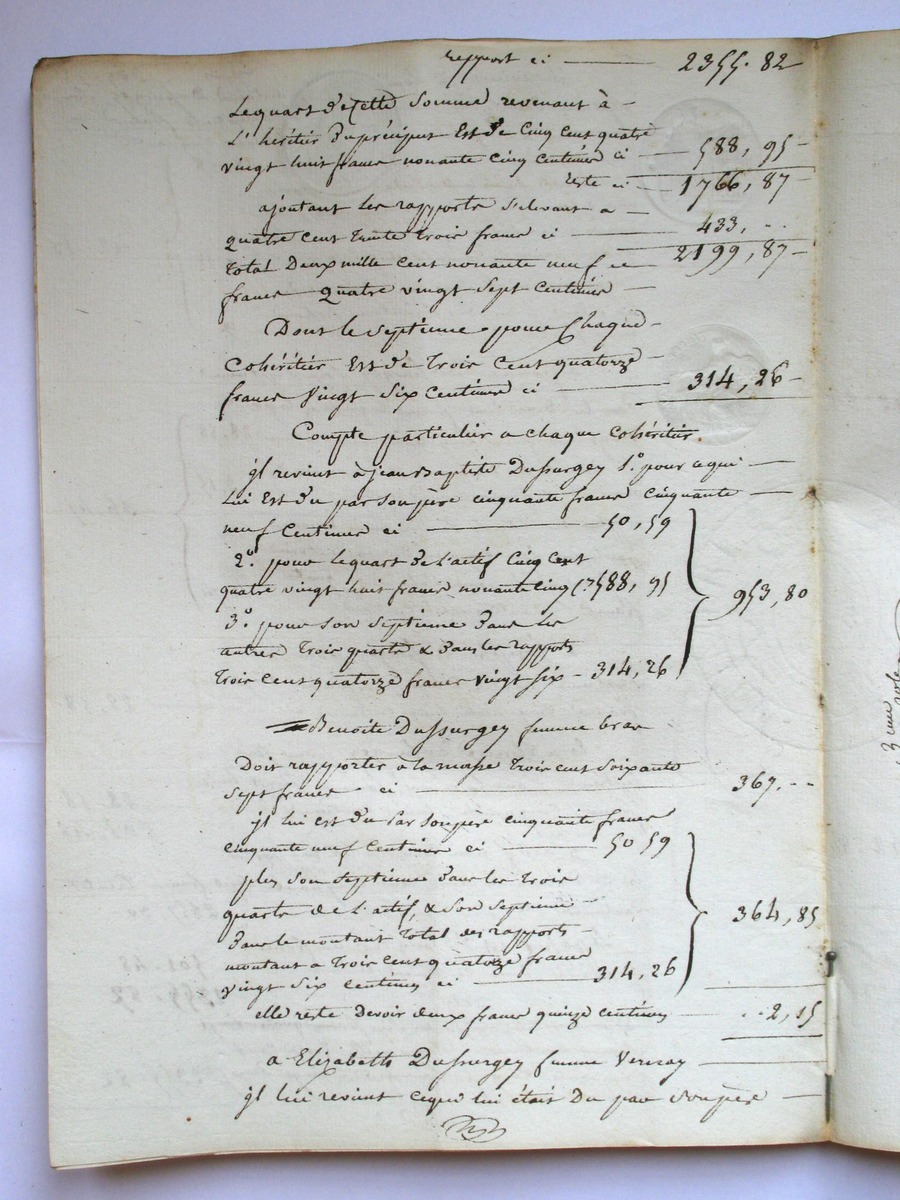 rapport ci 2355. 82
Le quart de Cette Somme revenant à
L'heritier Du préciput Est de Cinq Cent quatre
vingt huit francs nonante Cinq Centimes ci 588, 95
reste ci 1766, 87
ajoutant les rapports s'elevant a
quatre Cent trente trois francs ci 433, ..
Total Deux mille Cent nonante neuf 2199, 87
francs quatre vingt Sept Centimes
Dont le Septieme pour Chaque
Cohéritier Est de Trois Cent quatorze
francs Vingt Six Centimes ci 314, 26
Compte particulier a chaque Cohéritier.
jl revient à jean Baptiste Dussurgey 1.º pour ce qui
Lui Est du par Son père cinquante francs Cinquante
neuf Centimes ci 50, 59
2.º pour le quart De L'actif Cinq Cent
quatre vingt huit francs nonante Cinq C.es 588, 95
953, 80
3.º pour Son Septieme Dans les
autres Trois quarts & Dans les rapports
Trois Cent quatorze francs vingt six 314, 26
Benoite Dussurgey femme
Doit rapporter à la masse Trois cent Soixante
Sept francs ci 367. ..
jl lui est du Par Son père cinquante francs
Cinquante neuf Centimes ci 50 59
plus Son Septieme Dans les Trois
quarts de L'actif, & Son Septieme
364, 85
Dans le montant Total des rapports
montant a Trois Cent quatorze francs
vingt Six Centimes ci 314, 26
elle reste Devoir deux francs quinze Centimes ..2, 15
a Elizabeth Dussurgey femme
jl lui revient ce qui lui était Du par Son père